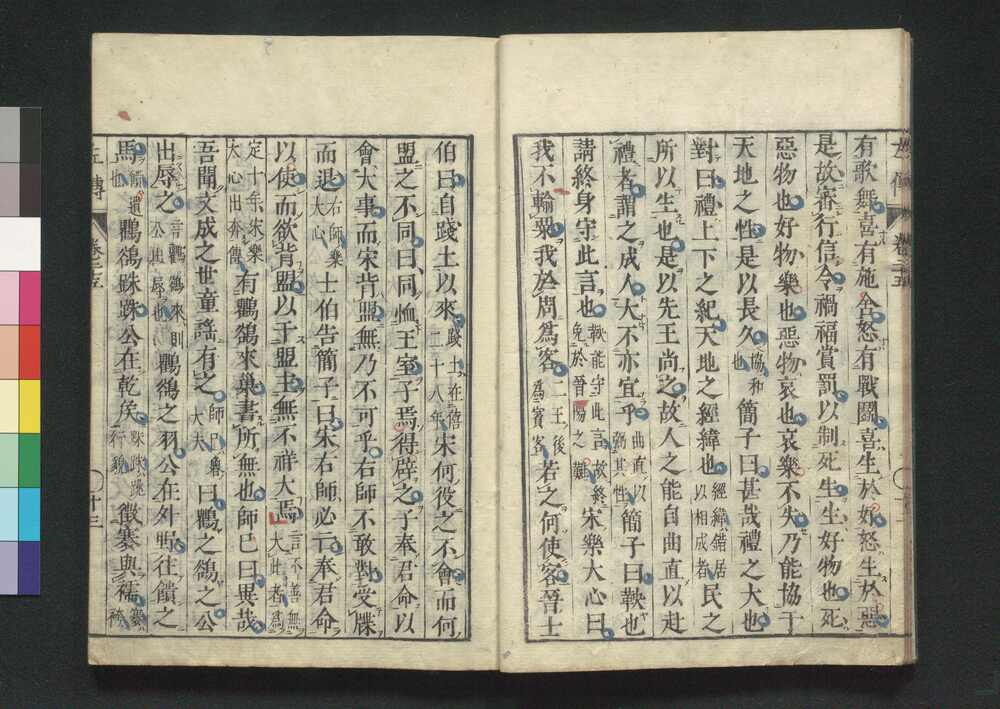 有歌舞喜有施舍怒有戰鬪喜生於好怒生於惡
是故審行信令禍福賞罰以制死生生好物也死
惡物也好物樂也惡物哀也哀樂不失乃能協于
天地之性是以長久協和也簡子曰甚哉禮之大也
對曰禮上下之紀天地之經緯也經緯錯居以相成者民之
所以生也是以先王尚之故人之能自曲直以赴
禮者謂之成人大不亦宜乎曲直以弼其性簡子曰鞅也
請終身守此言也鞅能守此言故終免於晉陽之難宋樂大心曰
我不輸粟我於周爲客二王後爲賓客若之何使客晉士
伯曰自踐土以來踐土在僖二十八年宋何役之不會而何
盟之不同曰同恤王室子焉得辟之子奉君命以
會大事而宋背盟無乃不可乎右師不敢對受牒
而退右師樂大心士伯告簡子曰宋右師必亡奉君命
以使而欲背盟以干盟主無不祥大焉言不善無大此者爲
定十年宋樂大心出奔傳有鸜鵒來巢書所無也師己曰異哉
吾聞文成之世童謠有之師己魯大夫曰鸜之鵒之公
出辱之言鸜鵒來則公出辱也鸜鵒之羽公在外野往饋之
馬饋遺也鸜鵒跦跦公在乾侯跦跦跳行貌徵褰與襦褰袴
左傳
十三